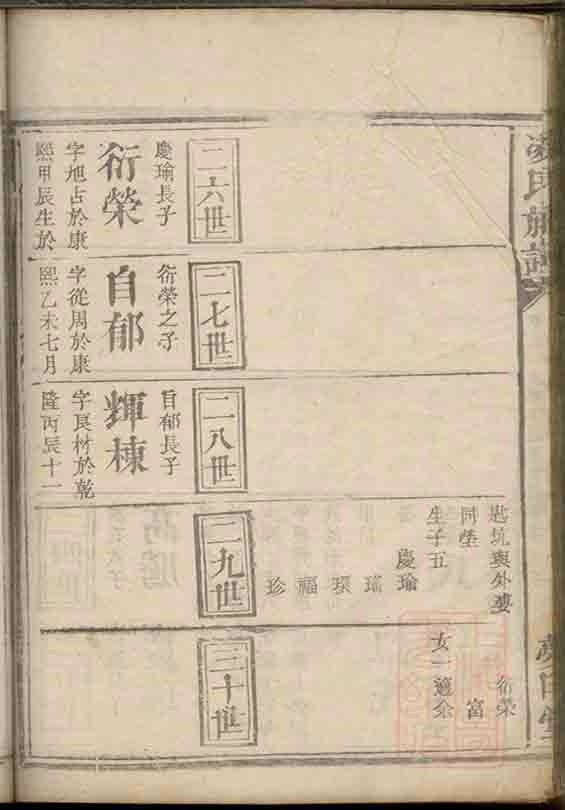 凌氏族譜
匙坑與外婆
同塋
生子五
慶瑜
瑤
環
福
珍
衍榮
富
女一適余
二六世
慶瑜長子
衍榮
字旭占於康
熙甲辰生於
二七世
衍榮之子
自郁
字從周於康
熙乙未七月
二八世
自郁長子
輝棟
字艮材於乾
隆丙辰十一
二九世
三十世